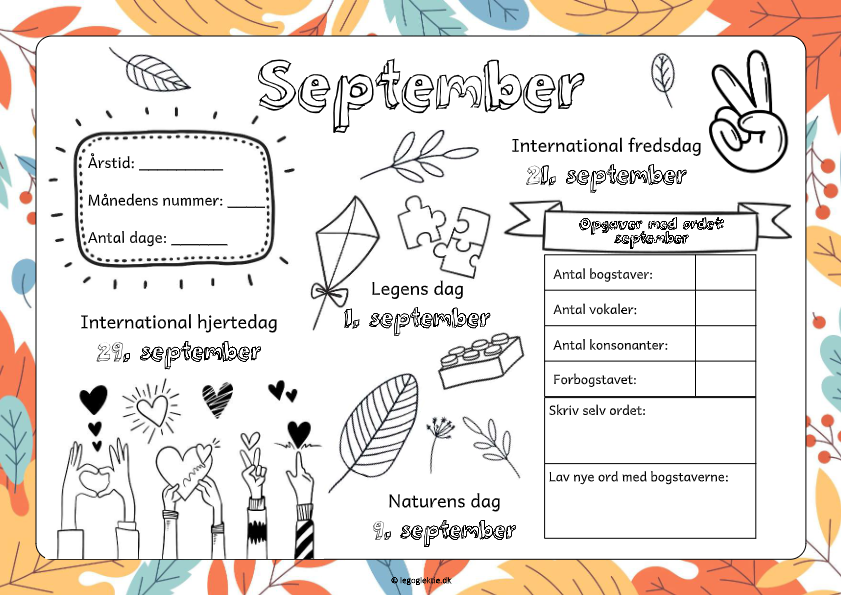 September
Årstid: ___________
Månedens nummer: _____
Antal dage: _______
International fredsdag
21. september
Opgaver med ordet
september
Antal bogstaver:
Antal vokaler:
Antal konsonanter:
Forbogstavet:
Skriv selv ordet:
Lav nye ord med bogstaverne:
Legens dag
1. september
International hjertedag
29. september
Naturens dag
9. september
© legoglektie.dk